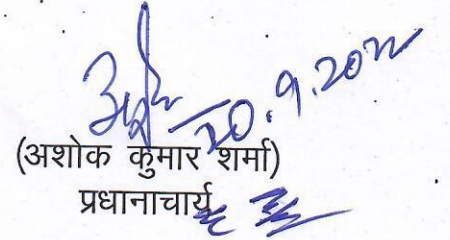 20.9.2022
(अशोक कुमार शर्मा)
प्रधानाचार्य